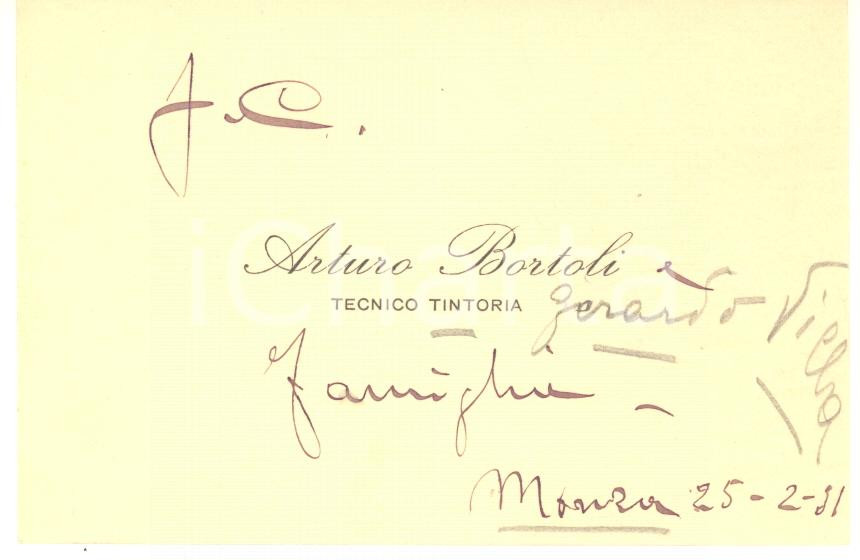 f. C.
Arturo Bortoli e
TECNICO TINTORIA
Gerardo Villa
famiglia -
Monza 25-2-31
iCharta